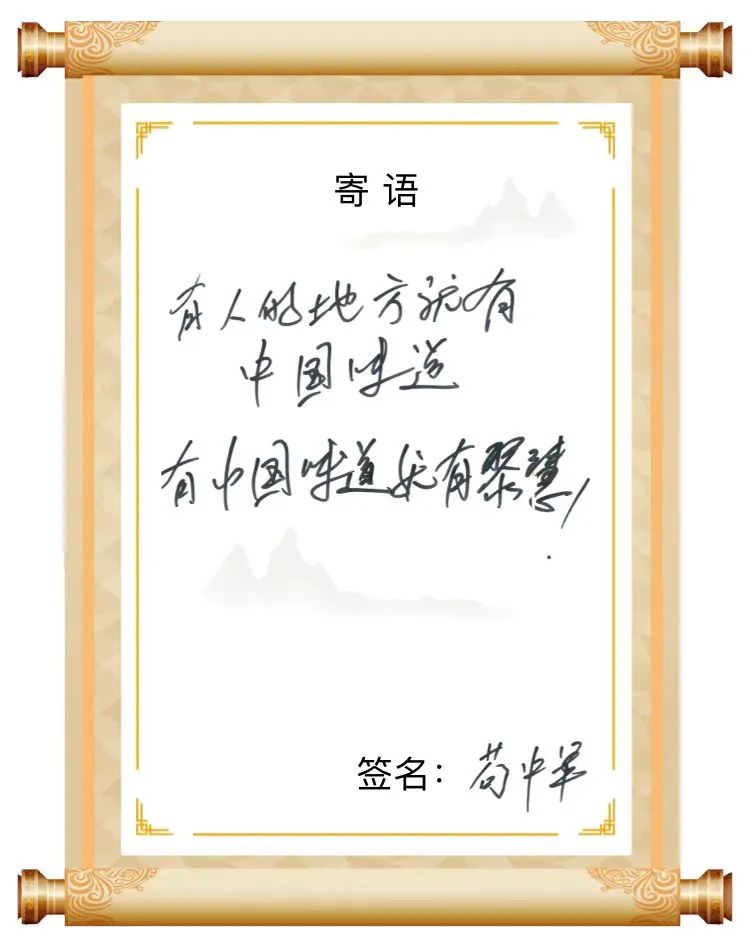 寄语
有人的地方就有
中国味道
有中国味道就有聚慧!
签名：苟中军